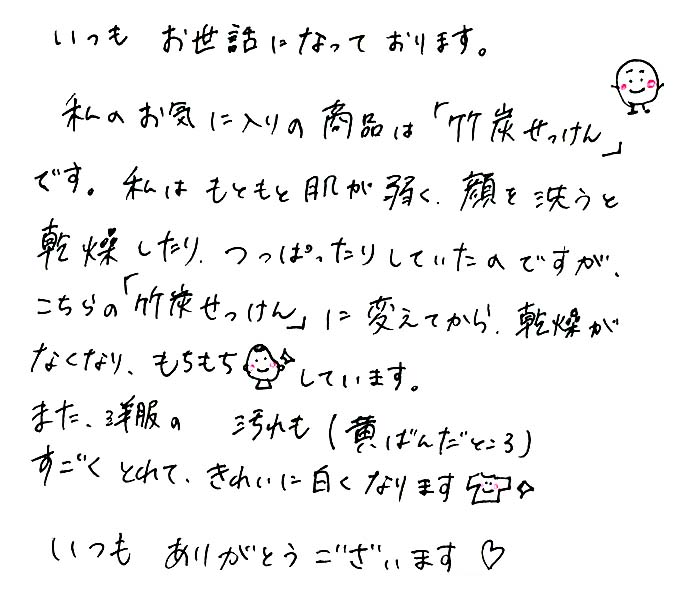 いつも お世話になっております。
私のお気に入りの商品は「竹炭せっけん」
です。私はもともと肌が弱く、顔を洗うと
乾燥したり、つっぱったりしていたのですが、
こちらの「竹炭せっけん」に変えてから、乾燥が
なくなり、もちもちしています。
また、洋服の 汚れも(黄ばんだところ)
すごくとれて、きれいに白くなります
いつも ありがとうございます♡